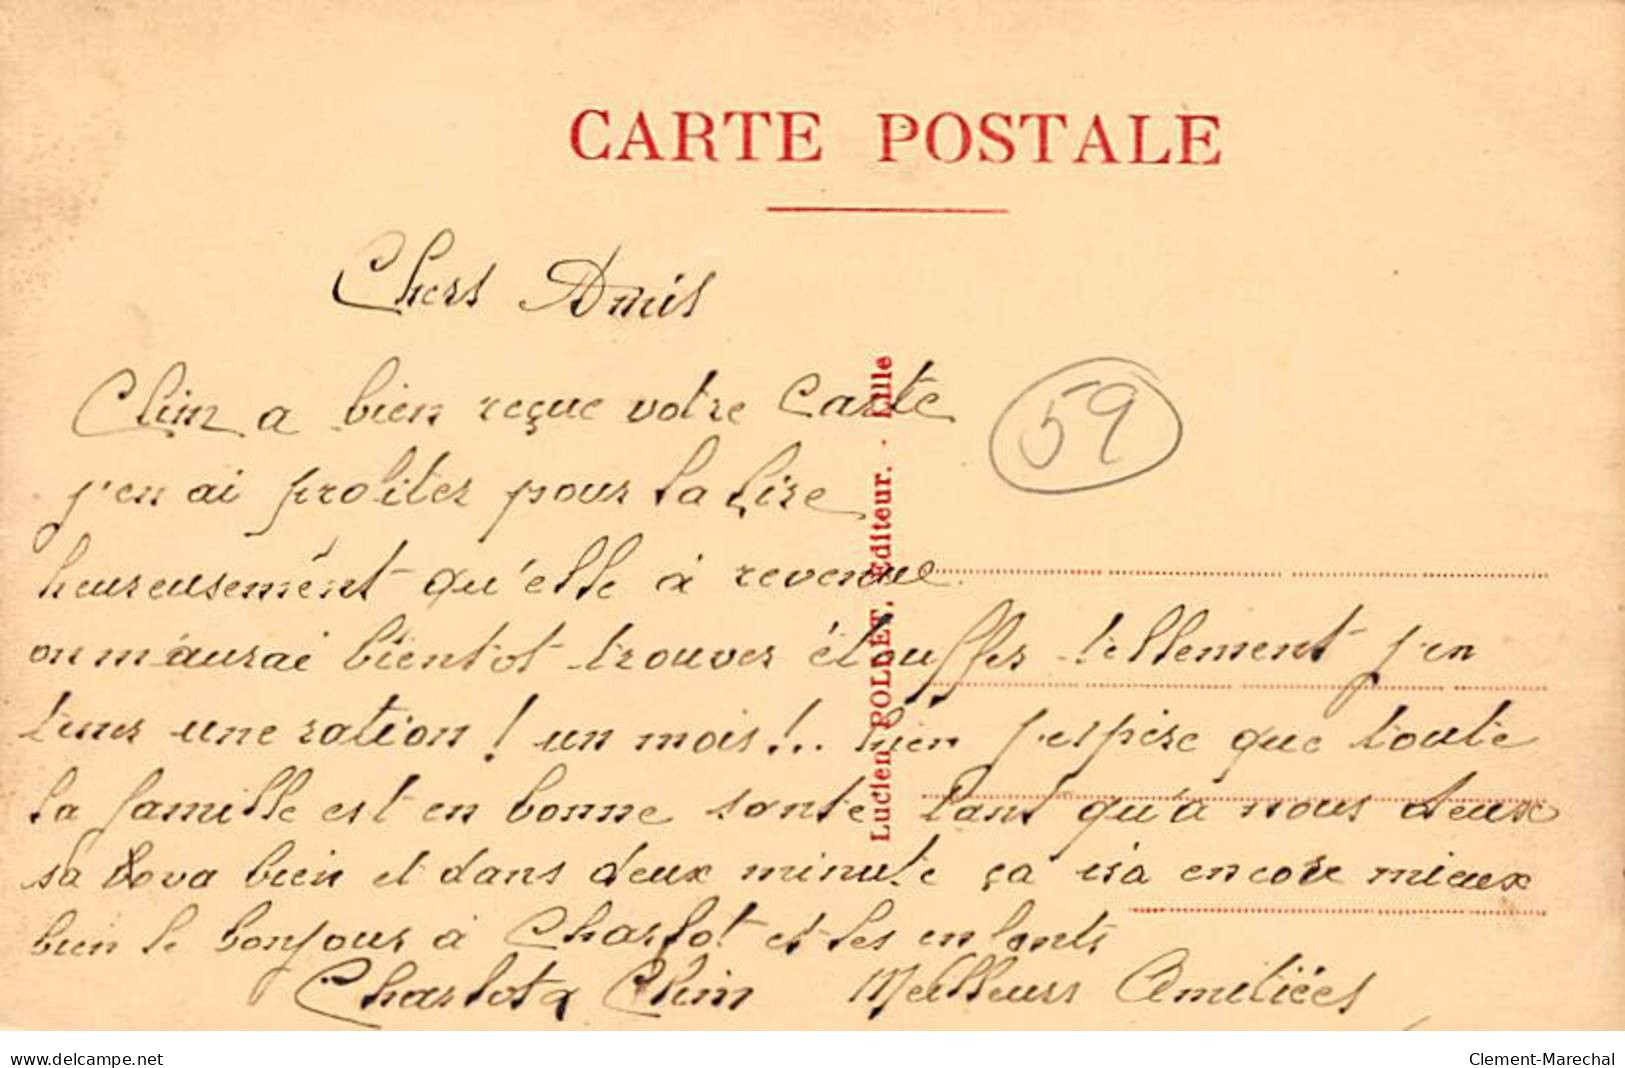 CARTE POSTALE
Chers Amis
Clim a bien reçue votre Carte
j'en ai profiter pour la lire
heureusement qu'elle à revenue
on m'aurai bientot trouver étouffer tellement j'en
tener une ration ! un mois !.. bien j'espère que toute
la famille est en bonne sante tant qu'a nous deux
sa va bien et dans deux minute ça ira encore mieux
bien le bonjour à Charlot et les enfants
Charlot & Clim Meilleurs Amitiées
59
Lucien POLLET, Editeur. - Lille
www.delcampe.net
Clement-Marechal